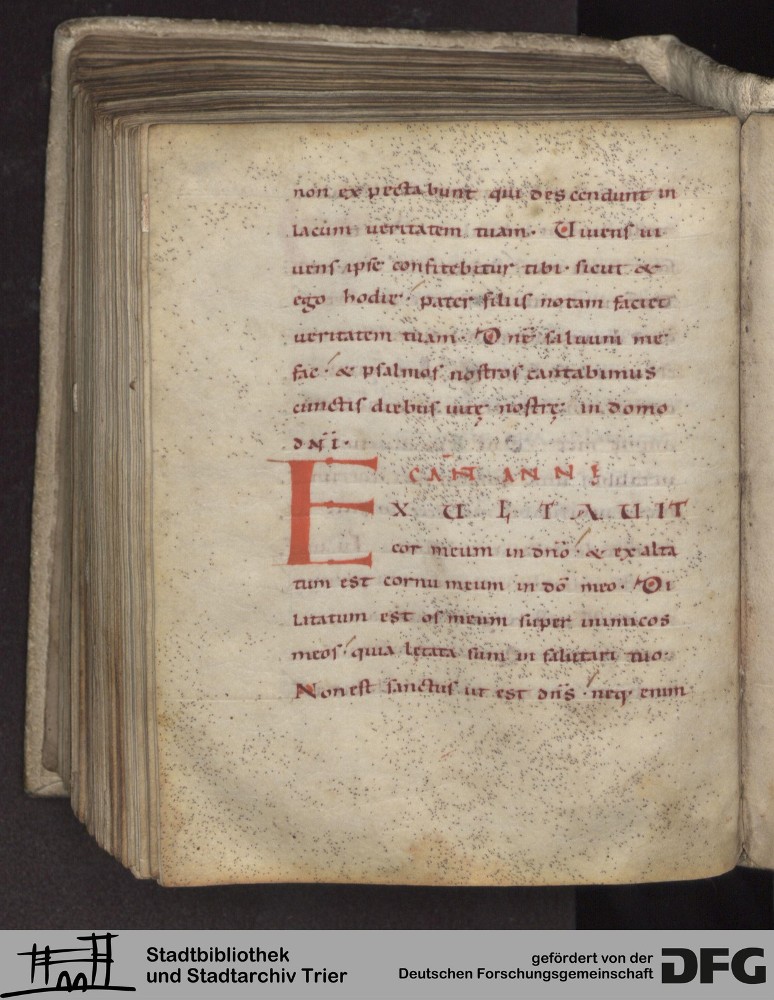 non expectabunt qui descendunt in
lacum ueritatem tuam. Uiuens ui
uens ipse confitebitur tibi. sicut &
ego hodie. pater filiis notam faciet
ueritatem tuam. Dne saluum me
fac. & psalmos nostros cantabimus
cunctis diebus uitę nostrę. in domo
dnī.
CAN̄ ANNE
EXULTAUIT
cor meum in dnō. & exalta
tum est cornu meum in dō meo. Di
litatum est os meum super inimicos
meos. quia letata sum in salutari tuo.
Non est sanctus ut est dns̄. neq. enim
Stadtbibliothek
und Stadtarchiv Trier
gefördert von der
Deutschen Forschungsgemeinschaft
DFG